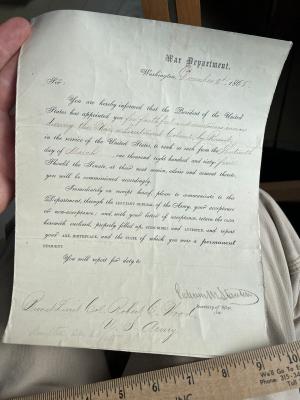 War Department,
Washington, December 2d 1865
SIR:
You are hereby informed that the President of the United
States has appointed you for faithful and meritorious services
during the War, a Lieutenant Colonel, by Brevet
in the service of the United States, to rank as such from the
day of March one thousand eight hundred and sixty five
Should the Senate, at their next session, advise and consent thereto,
you will be commissioned accordingly.
Immediately on receipt hereof, please to communicate to this
Department, through the ADJUTANT GENERAL of the Army, your acceptance
or non-acceptance; and, with your letter of acceptance, return the OATH
herewith enclosed, properly filled up, SUBSCRIBED and ATTESTED, and report
your AGE, BIRTHPLACE, and the STATE of which you were a PERMANENT
RESIDENT.
You will report for duty to
Edwin M Stanton
Secretary of War.
Brevet Lieut Col. Robert C. Wood
U. S. Army
5 6 7 8 9 10
We'll Go To
Phone: 315-
Toll
ING